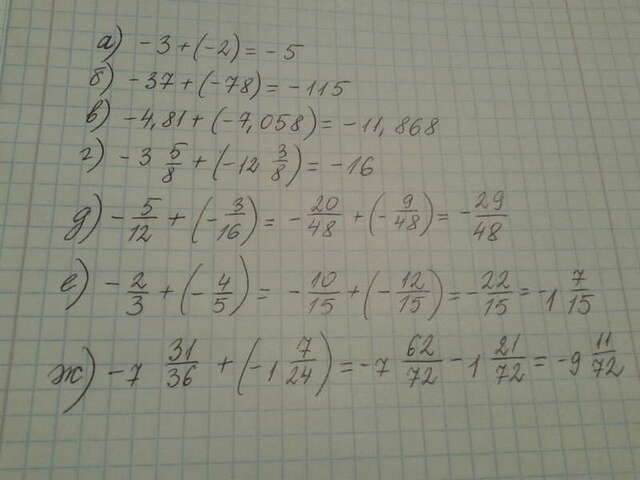 а) -3+(-2)=-5
б) -37+(-78)=-115
в) -4,81+(-7,058)=-11,868
г) -3 5/8+(-12 3/8)=-16
д) -5/12+(-3/16)=-20/48+(-9/48)=-29/48
е) -2/3+(-4/5)=-10/15+(-12/15)=-22/15=-1 7/15
ж) -7 31/36+(-1 7/24)=-7 62/72-1 21/72=-9 11/72